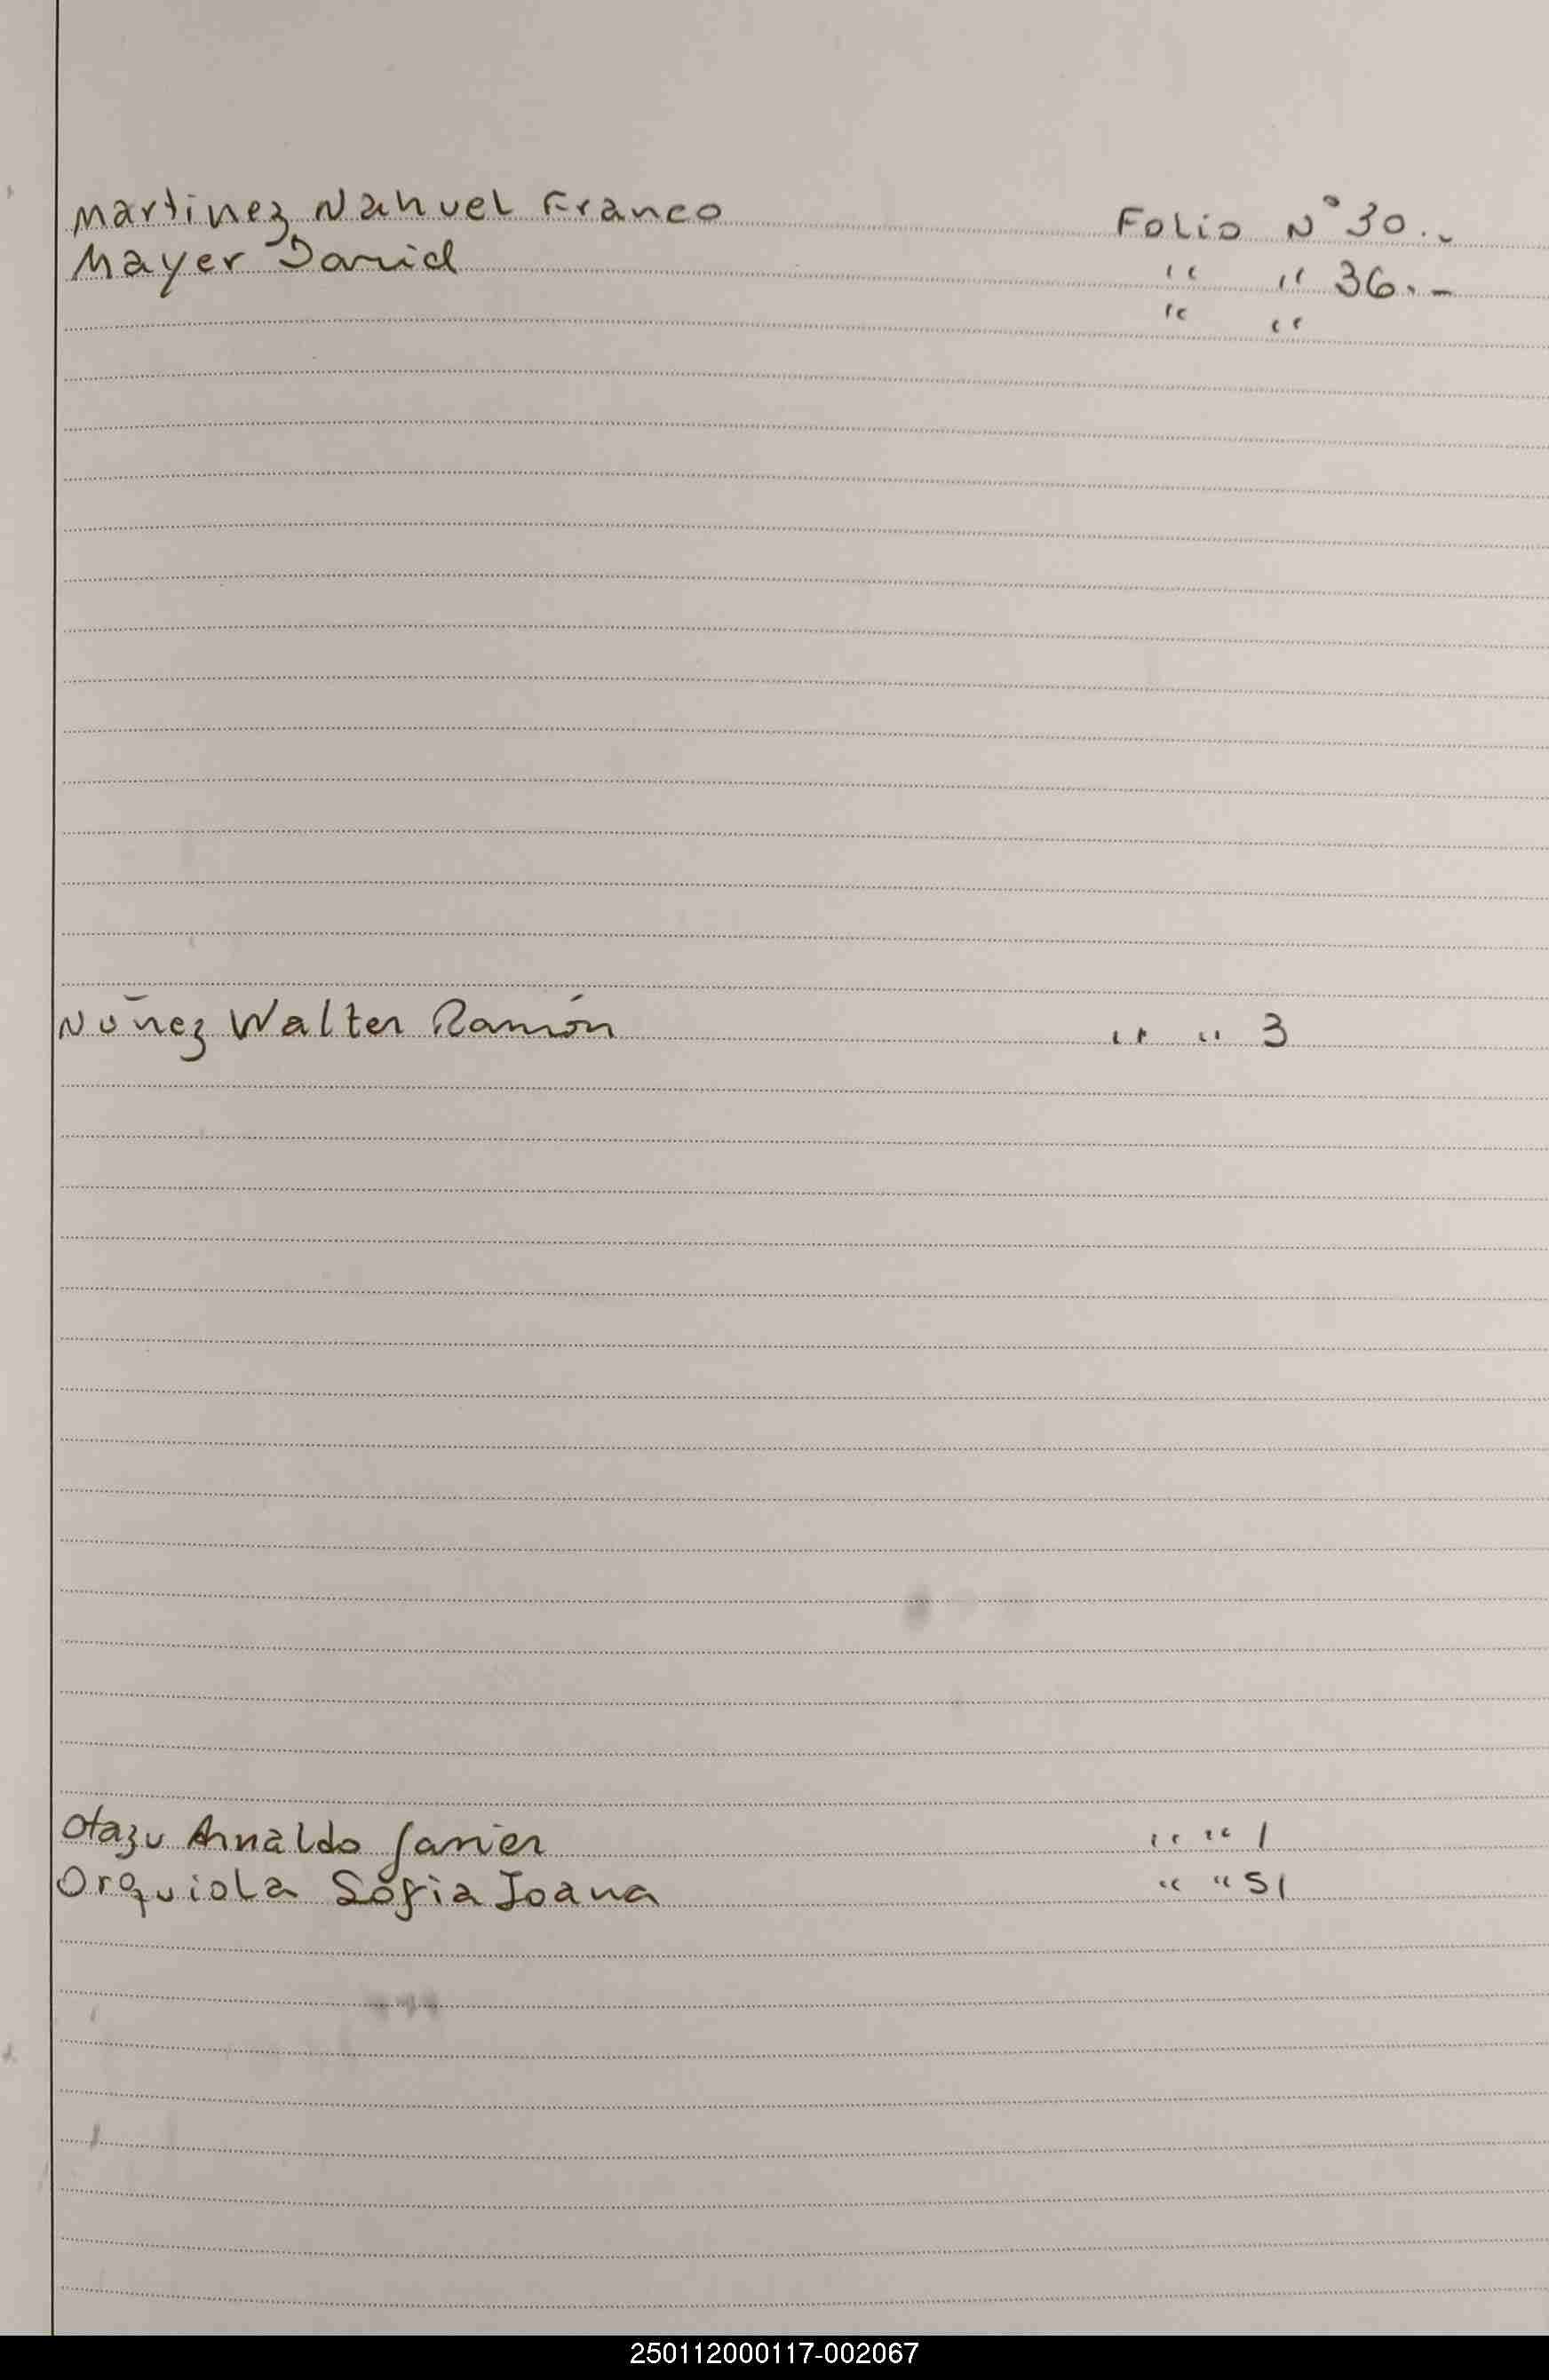 Martinez Nahuel Franco Folio N° 30.-
Mayer David " " 36.-
" "
Núñez Walter Ramón " " 3
Otazu Arnaldo Javier " " 1
Orquiola Sofia Joana " " 51
250112000117-002067